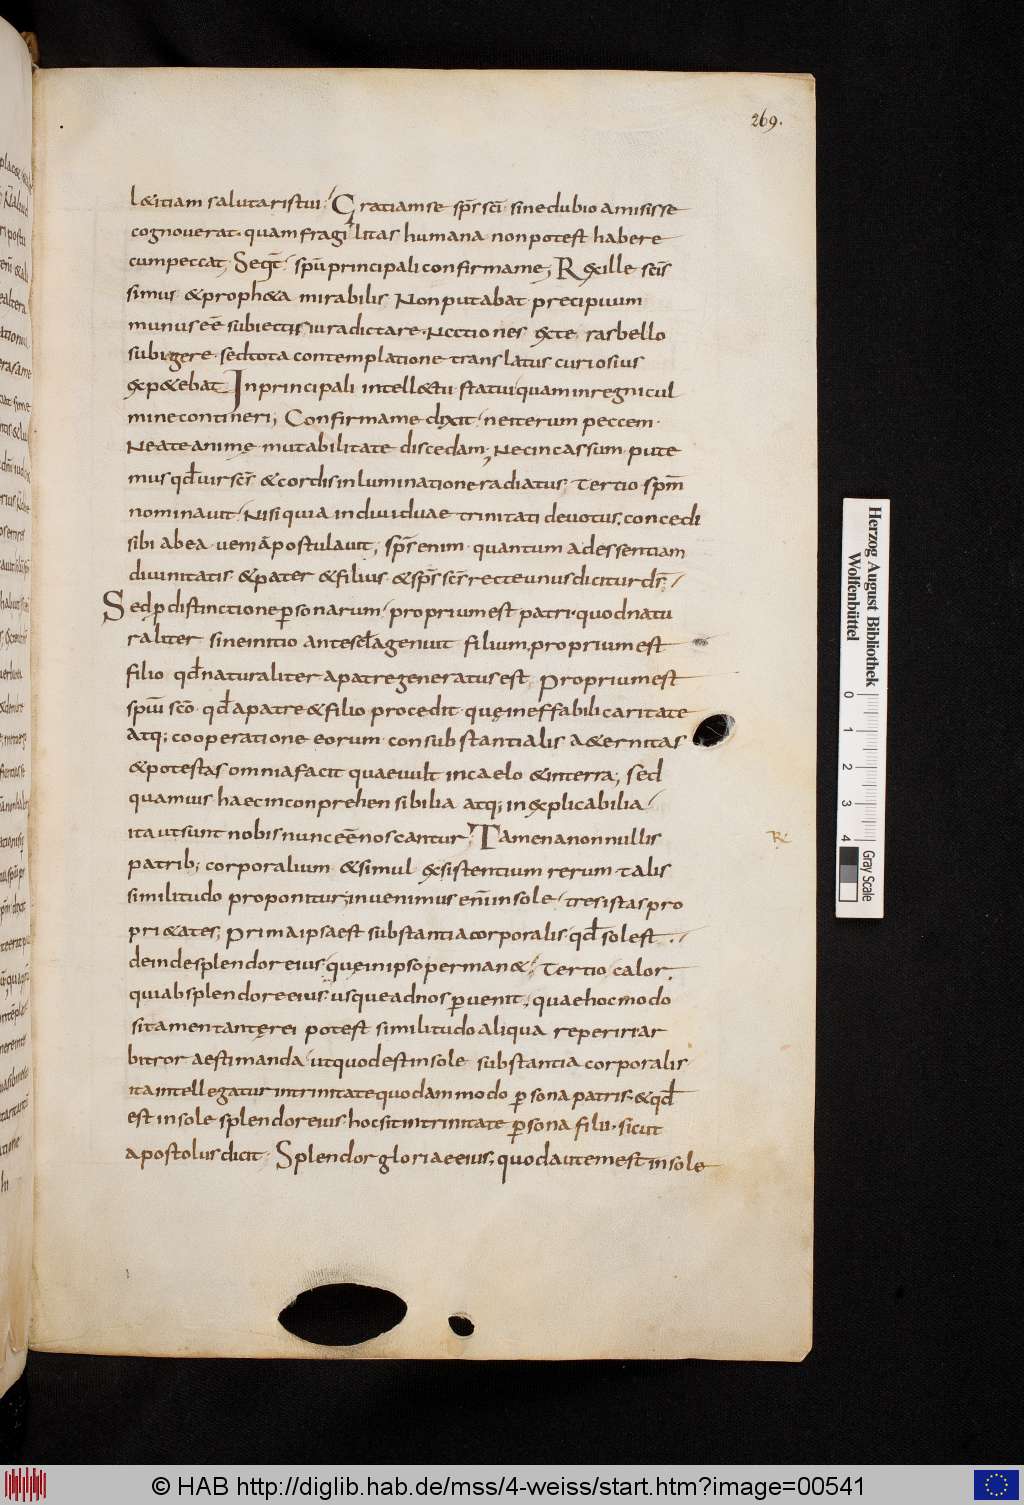 269.
l&itiam salutaris tui· Gratiam se sp̄s sc̄i sine dubio amisisse
cognoverat· quam fragilitas humana non potest habere
cum peccat; Seq̄t· spū principali confirma me; Rex ille sc̄is
simus· & proph&a mirabilis Non putabat precipuum
munus eē subiectis iura dictare· Nec tiones exte ras bello
subigere· sed tota contemplatione translatus curiosius
exp&ebat In principali intell&tu statui quam in regni cul
mine contineri; Confirma me dixit· ne iterum peccem·
Ne a te animę mutabilitate discedam; Nec incassum pute
mus qd̄ vir sc̄s· & cordis inluminatione radiatus· tertio sp̄m
nominavit· Nisi quia individuae trinitati devotus, concedi
sibi ab ea veniā postulavit; sp̄s enim quantum ad essentiam
divinitatis· & pater & filius & sp̄s sc̄s recte unus dicitur ds̄·
Sed p distinctione personarum· proprium est patri· quod natu
raliter sine initio ante scl̄a genuit filium, proprium est
filio qd̄ naturaliter a patre generatus est, Proprium est
spūi sc̄o· qd̄ a patre & filio procedit· quę ineffabili caritate
atq; cooperatione eorum· consubstantialis a&ernitas
& potestas omnia facit quae vult in caelo & in terra; sed
quamvis haec inconprehensibilia atq; inexplicabilia·
ita ut sunt nobis nunc eē noscantur· Tamen a nonnullis
patrib; corporalium & simul existentium rerum· talis
similitudo proponitur; invenimus enī in sole· tres istas pro
pri&ates; Prima ipsa est substantia corporalis qd̄ sol est·
deinde splendor eius· quę in ipso perman&· tertio calor·
qui ab splendore eius· usque ad nos pervenit, quae hoc modo
si tamen tantę rei potest similitudo aliqua reperiri ar
bitror aestimanda· ut quod est in sole substantia corporalis
ita intellegatur in trinitate quodammodo persona patris· & qd̄
est in sole splendor eius· hoc sit in trinitate persona filii· sicut
apostolus dicit· Splendor gloriae eius, quod autem est in sole
Herzog August Bibliothek
Wolfenbüttel
0 1 2 3 4
Gray Scale
© HAB http://diglib.hab.de/mss/4-weiss/start.htm?image=00541